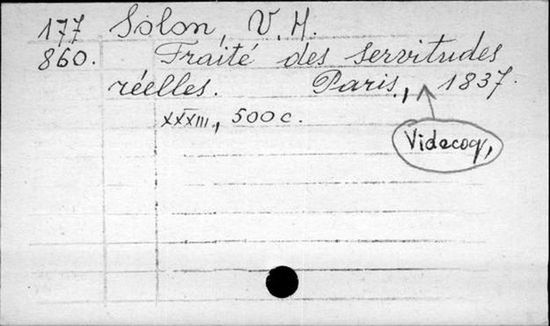 177 Solon, V. H.
860. Traité des servitudes
réelles. Paris, 1837.
XXXIII, 500 c.
Videcoq,